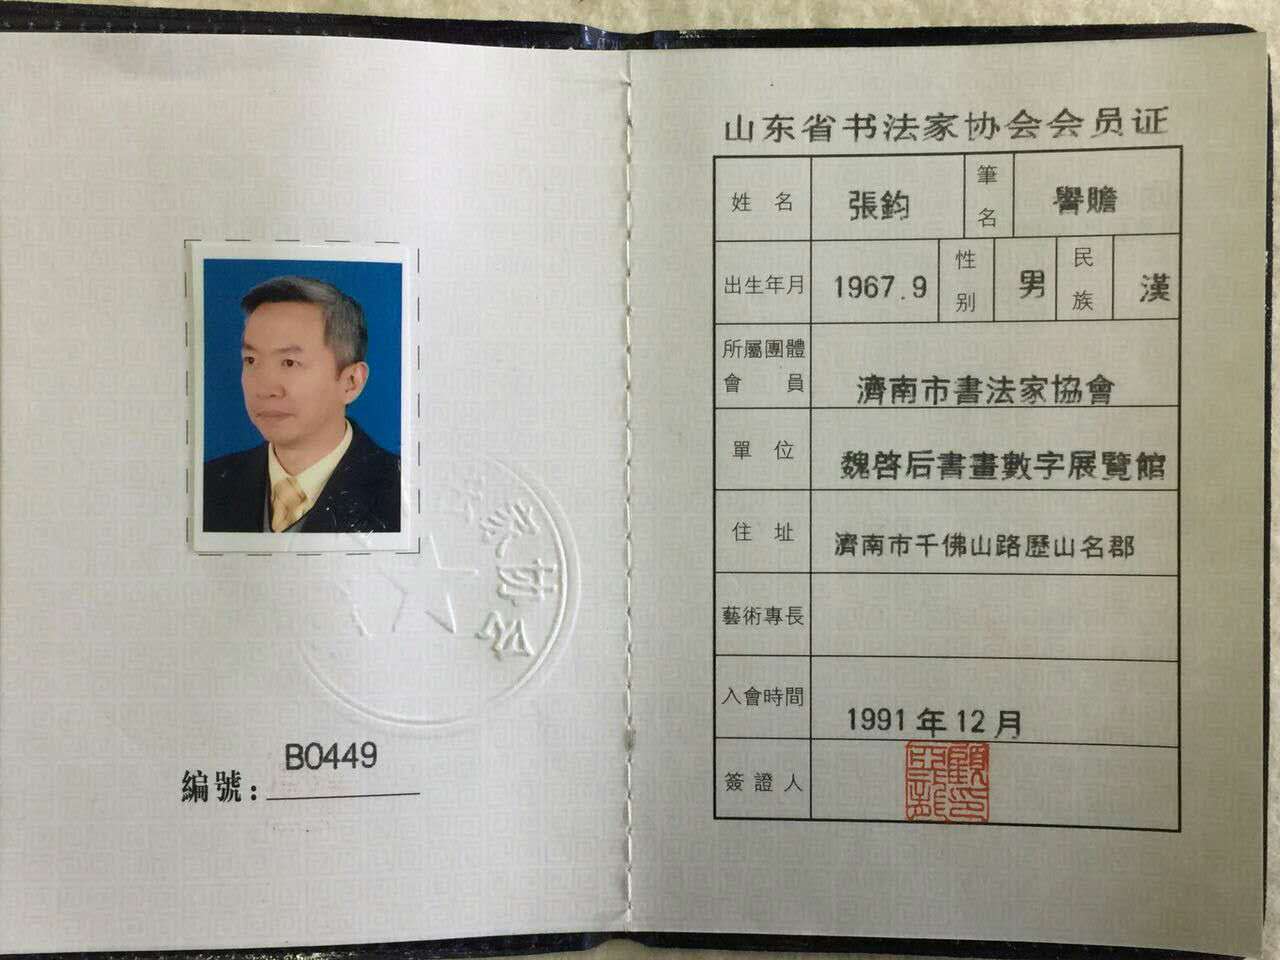 家协会
编號：B0449
山东省书法家协会会员证
姓名 張鈞 筆名 譽贍
出生年月 1967.9 性别 男 民族 漢
所屬團體會員 濟南市書法家協會
單位 魏啓后書畫數字展覽館
住址 濟南市千佛山路歷山名郡
藝術專長
入會時間 1991年12月
簽證人